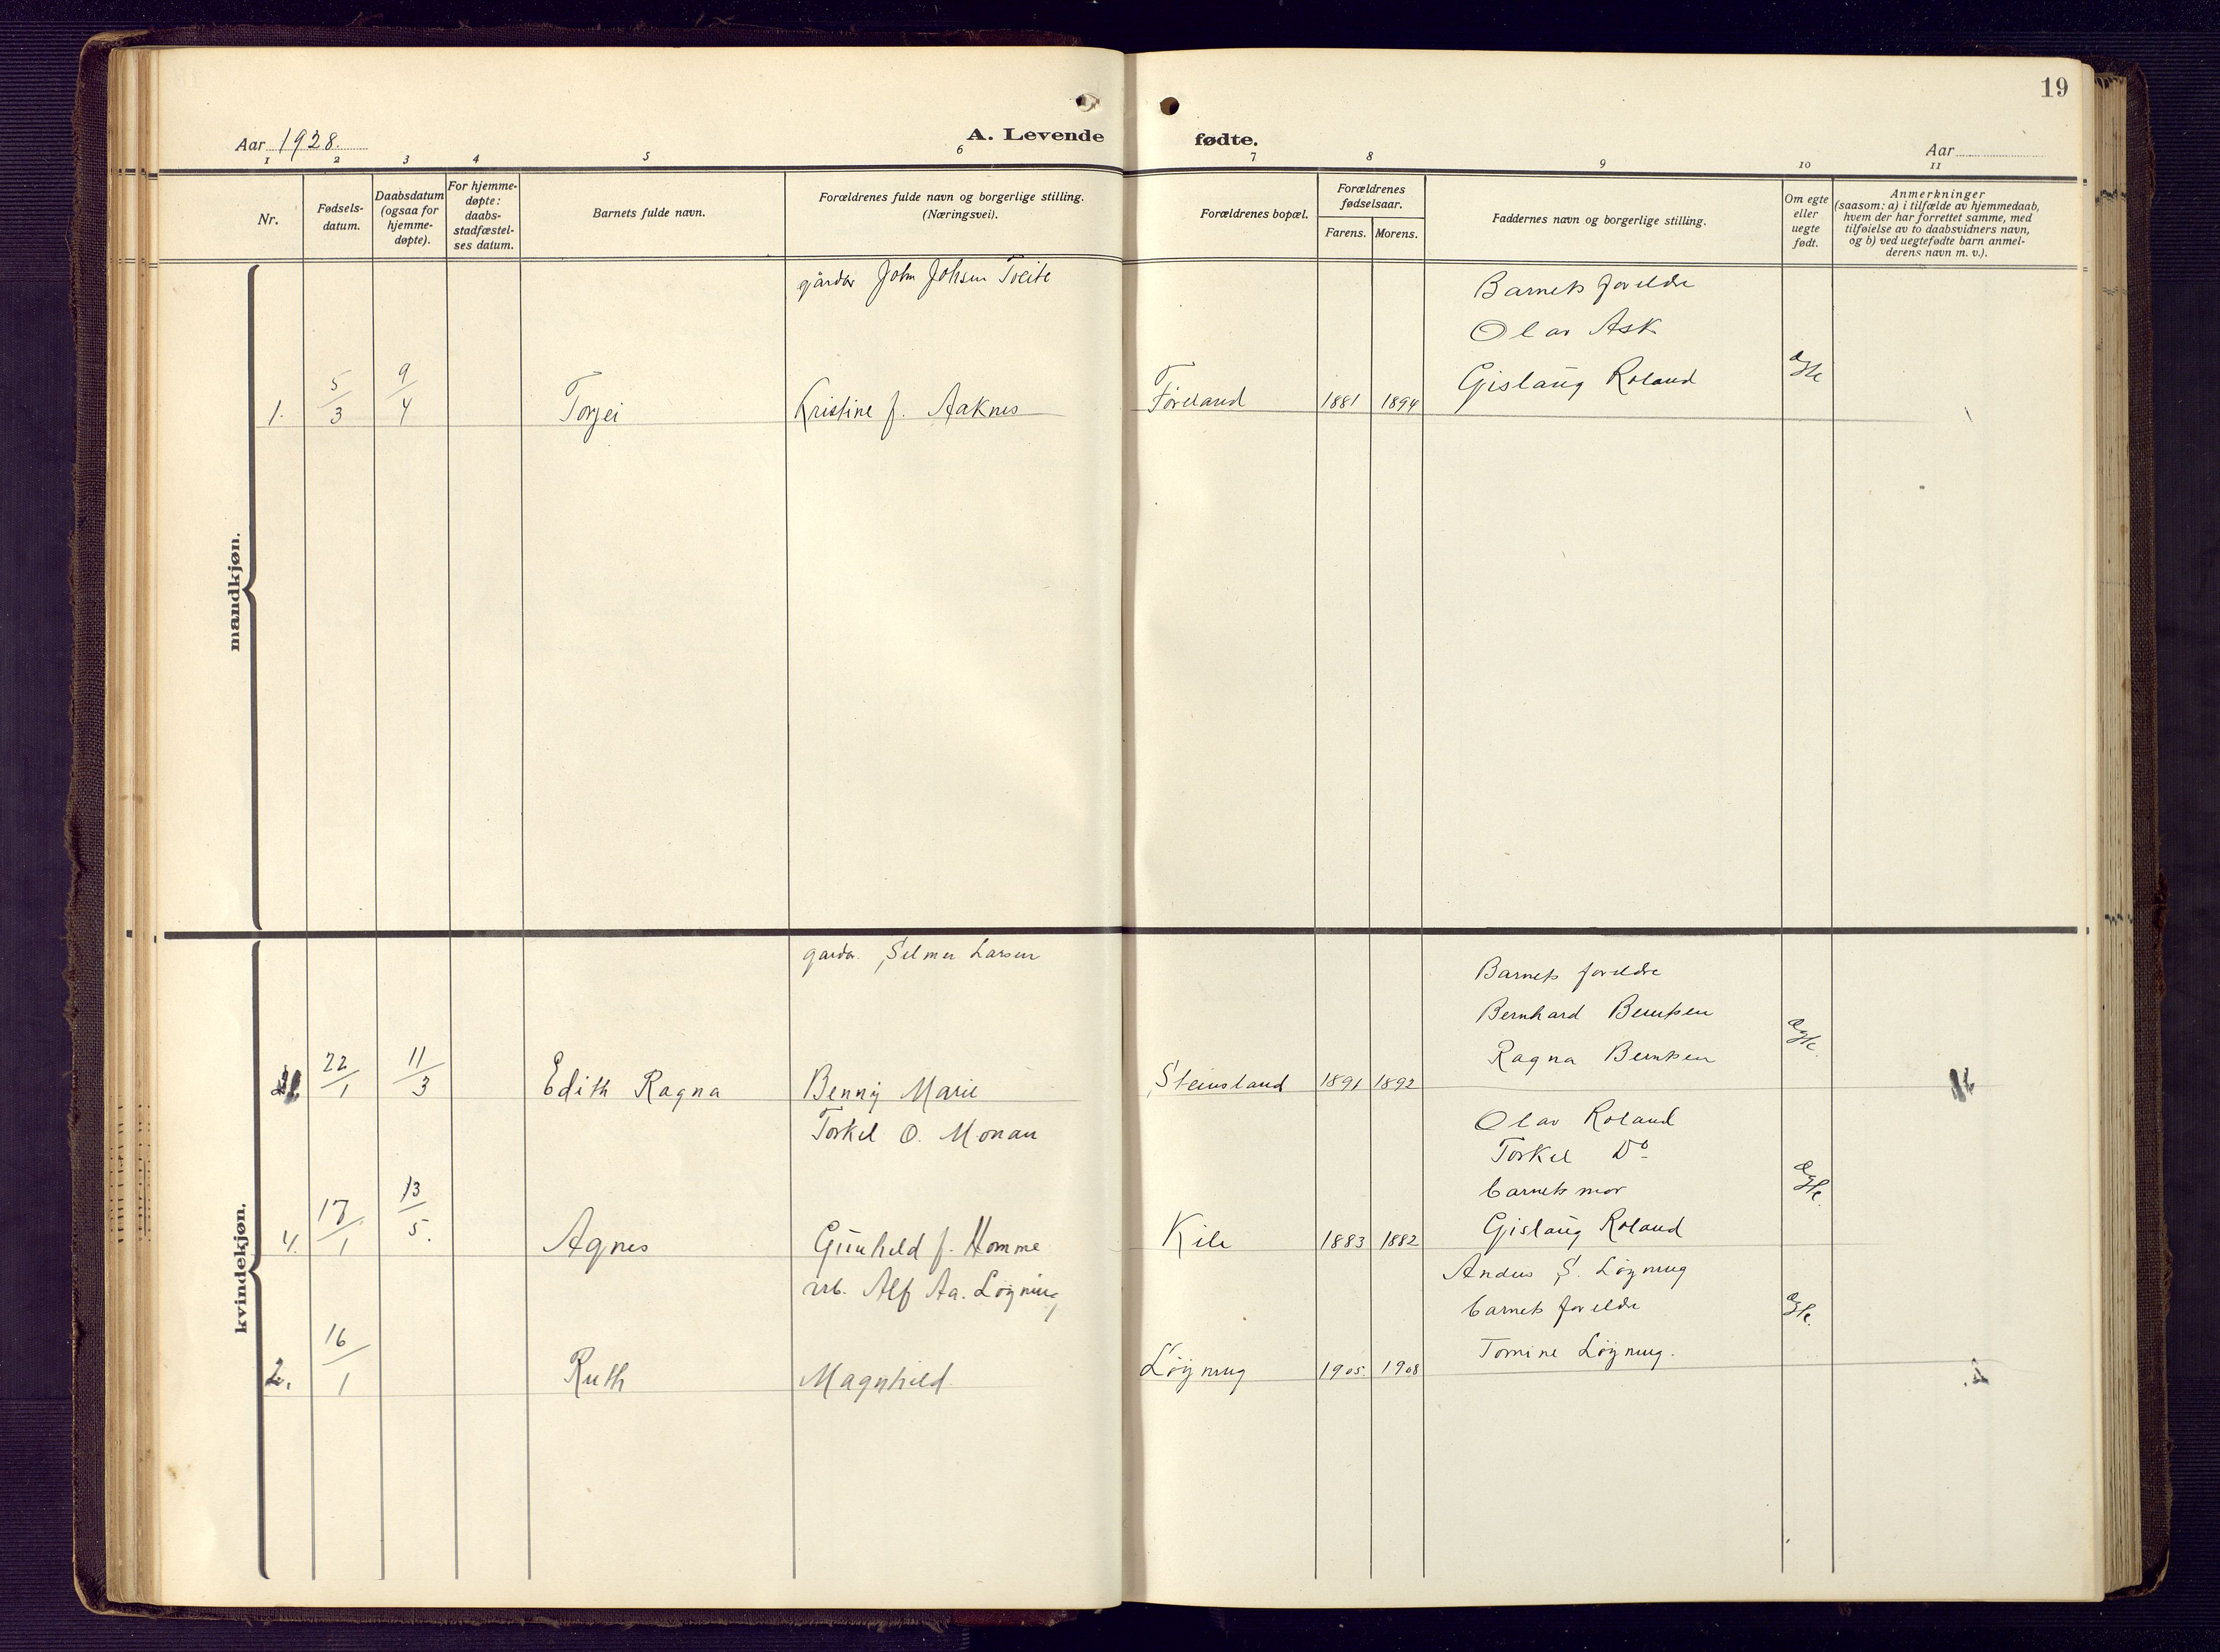 19
Aar 1928.
A. Levende fødte.
Aar
1 2 3 4 5 6 7 8 9 10 11
Nr.
Fødsels-
datum.
Daabsdatum
(ogsaa for
hjemme-
døpte).
For hjemme-
døpte:
daabs-
stadfæstel-
ses datum.
Barnets fulde navn.
Forældrenes fulde navn og borgerlige stilling.
(Næringsvei).
Forældrenes bopæl.
Forældrenes
fødselsaar.
Farens. Morens.
Faddernes navn og borgerlige stilling.
Om egte
eller
uegte
født.
Anmerkninger
(saasom: a) i tilfælde av hjemmedaab,
hvem der har forrettet samme, med
tilføielse av to daabsvidners navn,
og b) ved uegtefødte barn anmel-
derens navn m. v.).
mandkjøn.
gårdbr John Johsen Tveite
Barnets foreldre
Olav Ask
Gislaug Roland
1. 5/3 9/4 Torjei Kristine f. Aaknes Föreland 1881 1894 egte
kvindekjøn.
gardbr. Selmer Larsen
Barnets foreldre
Bernhard Berntsen
Ragna Berntsen
22/1 11/3 Edith Ragna Benny Marie Steinsland 1891 1892 egte.
Torkel O. Monan
Olav Roland
Torkel Do
barnets mor
Gislaug Roland
4. 17/1 13/5. Agnes Gunhild f. Homme Kile 1883 1882 egte.
arb. Alf Aa. Löyning
Anders S. Löyning
barnets foreldre
Tomine Löyning.
2. 16/1 Ruth Magnhild Löyning 1905. 1908 egte.